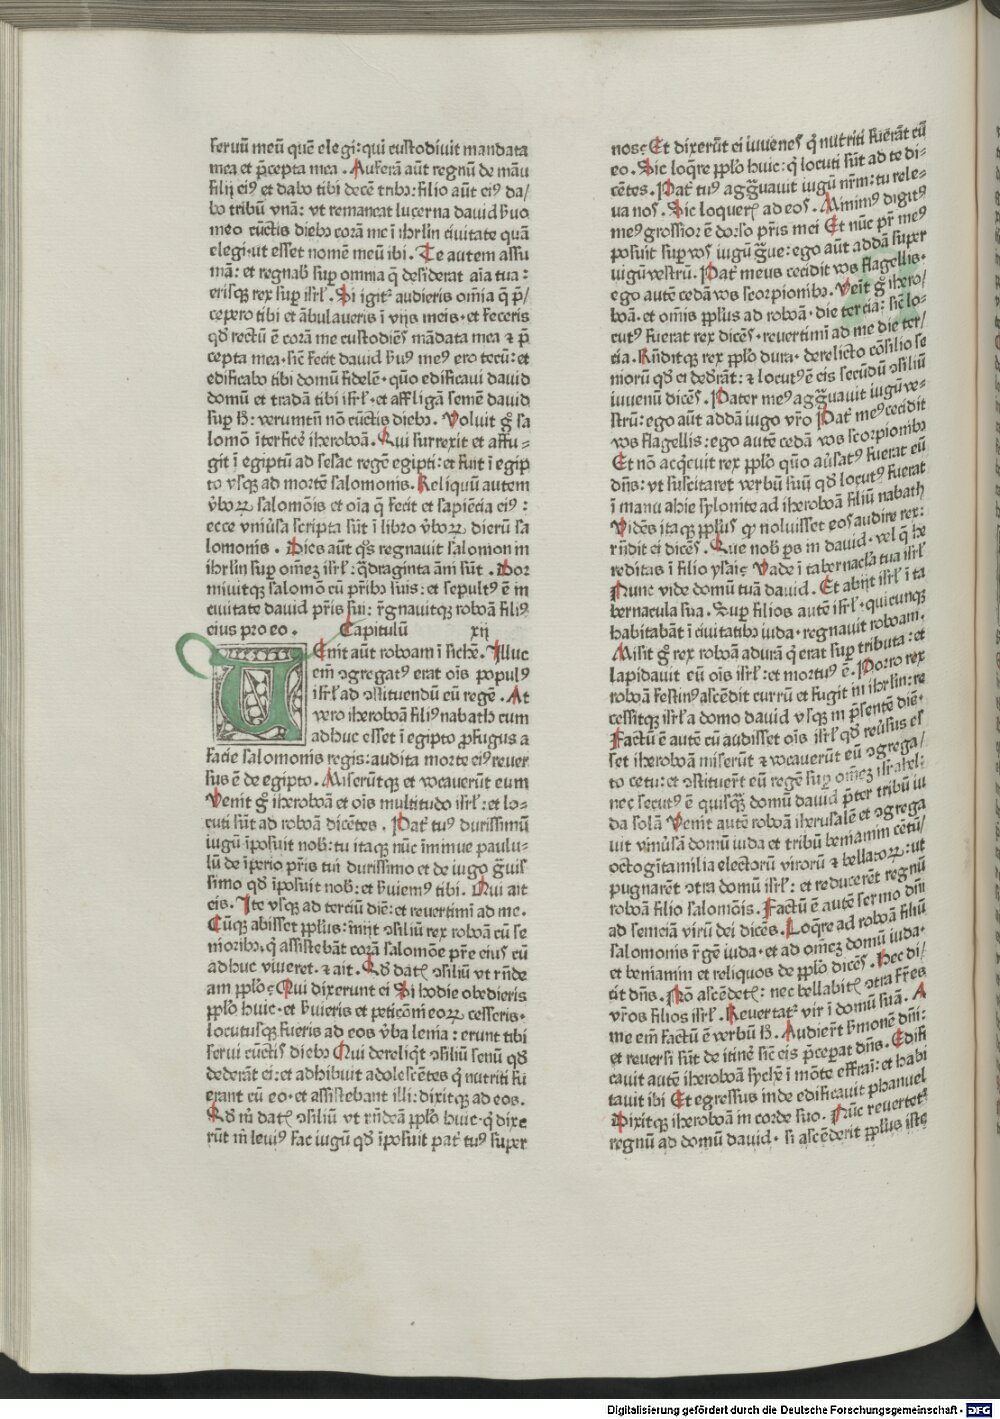 seruū meū quē elegi: qui custodiuit mandata
mea et p̄cepta mea . Auferā aūt regnū de māu
filij eiꝰ et dabo tibi decē tribꝰ: filio aūt eiꝰ da/
bo tribū vnā: vt remaneat lucerna dauid ẜuo
meo cūctis diebꝰ corā me ī ihrlm ciuitate quā
elegi·ut esset nomē meū ibi . Te autem assu
mā: et regnabꝭ sup̄ omnia q̄ desiderat aīa tua :
erisqꝫ rex sup̄ isrł . Si igit᷑ audieris om̄ia q̄ p̄/
cepero tibi et ābulaueris ī vijs meis· et feceris
qđ rectū ē corā me custodiēs mādata mea ⁊ p̄
cepta mea· sic̄ fecit dauid ẜuꝰ meꝰ ero tecū: et
edificabo tibi domū fidelē· quō edificaui dauid
domū et tradā tibi isrł· et affligā semē dauid
sup̄ ħ: verumtn̄ nō cūctis diebꝰ . Voluit gͦ sa
lomō īterfice᷑ iheroboā . Qui surrexit et affu⸗
git ī egiptū ad sesac regē egipti: et fuit ī egip
to vsqꝫ ad mortē salomonis. Reliquū autem
v̄boꝝ salomōis et oīa q̄ fecit et sapiēcia eiꝰ :
ecce vniūsa scripta sūt ī libro v̄boꝝ dierū sa
lomonis . Dies aūt qͦs regnauit salomon in
ihrlm sup̄ omēꝫ isrł: q̄draginta āni sūt . Dor
miuitqꝫ salomō cū pr̄ibꝰ suis: et sepultꝰ ē in
ciuitate dauid pr̄is sui: r̄gnauitqꝫ roboā filiꝰ
eius pro eo . Capitulū xij
VEnit aūt roboam ī sichē. Illuc
em̄ ꝯgregatꝰ erat oīs populꝰ
isrł ad ꝯstituendū eū regē . At
vero iheroboā filiꝰ nabath cum
adhuc esset ī egipto ꝓfugus a
facie salomonis regis: audita morte eiꝰ reuer
sus ē de egipto . Miserūtqꝫ et vocauerūt eum
Venit gͦ iheroboā et oīs multitudo isrł: et lo⸗
cuti sūt ad roboā dicētes . Pat᷑ tuꝰ durissimū
iugū īposuit nobꝭ: tu itaqꝫ nūc īminue paulu⸗
lū de īperio pr̄is tui durissimo et de iugo g̃uis
simo qđ īposuit nobꝭ: et ẜuiemꝰ tibi . Qui ait
eis . Ite vsqꝫ ad terciū diē: et reuertimī ad me.
Cūqꝫ abisset pp̄lus: īnijt ꝯsiliū rex roboā cū se
nioribꝰ q̄ assistebāt corā salomōe pr̄e eius cū
adhuc viueret· ⁊ ait . Qđ datꝭ ꝯsiliū vt rn̄de
am pp̄lo· Qui dixerunt ei Si hodie obedieris
pp̄lo huic· et ẜuieris et peticōm̄ eoꝝ cesseris·
locutusqꝫ fueris ad eos v̄ba lenia : erunt tibi
serui cūctis diebꝰ Qui dereliq̄t ꝯsiliū senū qđ
dederāt ei: et adhibuit adolescētes q̄ nutriti fu
erant cū eo· et assistebant illi: dixitqꝫ ad eos.
Qđ m̄ datꝭ ꝯsiliū vt rn̄deā pp̄lo huic· q̄ dixe
rūt m̄ leuiꝰ fac iugū qđ īposuit pat᷑ tuꝰ super
nos· Et dixerūt ei iuuenes q̄ nutriti fuerāt cū
eo. Sic loq̄re pp̄lo huic: q̄ locuti sūt ad te di⸗
cētes . Pat᷑ tuꝰ agg̃uauit iugū nr̄m: tu rele⸗
ua nos . Sic loquerꝭ ad eos . Minimꝰ digitꝰ
meꝰ grossior ē dorso pr̄is mei Et nūc pr̄ meꝰ
posuit sup̄ vos iugū g̃ue: ego aūt addā super
iugū vestrū . Pat᷑ meus cecidit vos flagellis·
ego autē cedā vos scorpionibꝰ . Venit gͦ ihero/
boā· et om̄is pp̄lus ad roboā· die tercia: sic̄ lo⸗
cutꝰ fuerat rex dicēs· reuertimī ad me die ter/
cia . Rn̄ditqꝫ rex pp̄lo dura· derelicto cōsilio se
niorū qđ ei dedr̄ant: ⁊ locutꝰ ē eis secūdū ꝯsiliū
iuuenū dicēs . Pater meꝰ agg̃uauit iugū ve⸗
strū: ego aūt addā iugo vr̄o Pat᷑ meꝰ cecidit
vos flagellis: ego autē cedā vos scorpionibꝰ
Et nō acq̄euit rex pp̄lo quō aūsatꝰ fuerat eū
dn̄s: vt suscitaret verbū suū qđ locutꝰ fuerat
ī manu ahie sylonite ad iheroboā filiū nabath
Vidēs itaqꝫ pp̄lus ꝙ noluisset eos audire rex:
rn̄dit ei dicēs . Que nobꝭ ps̄ in dauid· vel q̄ he
reditas ī filio ysaie Vade ī tabernacła tua isrł
Nunc vide domū tuā dauid . Et abijt isrł ī ta
bernacula sua . Sup̄ filios autē isrł· quicunqꝫ
habitabāt ī ciuitatibꝰ iuda· regnauit roboam.
Misit gͦ rex roboā adurā q̄ erat sup̄ tributa: et
lapidauit eū oīs isrł: et mortuꝰ ē . Porro rex
roboā festinꝰ ascēdit currū et fugit in ihrlm: re
cessitqꝫ isrł a domo dauid vsqꝫ in p̄sentē diē·
Factū ē autē cū audisset oīs isrł qđ reuūsus es
set iheroboā miserūt ⁊ vocauerūt eū ꝯgrega/
to cetu: et ꝯstituer̄t eū regē sup̄ omēꝫ israhel:
nec secutꝰ ē quisq̄ꝫ domū dauid p̄ter tribū iu
da solā Venit autē roboā iherusalē et ꝯgrega
uit vniūsā domū iuda et tribū beniamin cētū/
octogītamilia electorū virorū ⁊ bellatoꝝ: ut
pugnarēt ꝯtra domū isrł: et reducerēt regnū
roboā filio salomōis. Factū ē autē sermo dn̄i
ad semeiā virū dei dicēs . Loq̄re ad roboā filiū
salomonis r̄gē iuda· et ad omēꝫ domū iuda·
et beniamin et reliquos de pp̄lo dicēs . Hec di/
cit dn̄s. Nō ascēdetꝭ: nec bellabitꝭ ꝯtra fr̄es
vr̄os filios isrł . Reuertat᷑ vir ī domū suā . A
me em̄ factū ē verbū ħ . Audier̄t ẜmonē dn̄i:
et reuersi sūt de itine᷑ sic̄ eis p̄ceperat dn̄s. Edifi
cauit autē iheroboā sychē ī mōte effraī: et habi
tauit ibi Et egressus inde edificauit phanuel
Dixitqꝫ iheroboā in corde suo . Nūc reuertet᷑
regnū ad domū dauid· si ascēderit pp̄lus iste
Digitalisierung gefördert durch die Deutsche Forschungsgemeinschaft - DFG